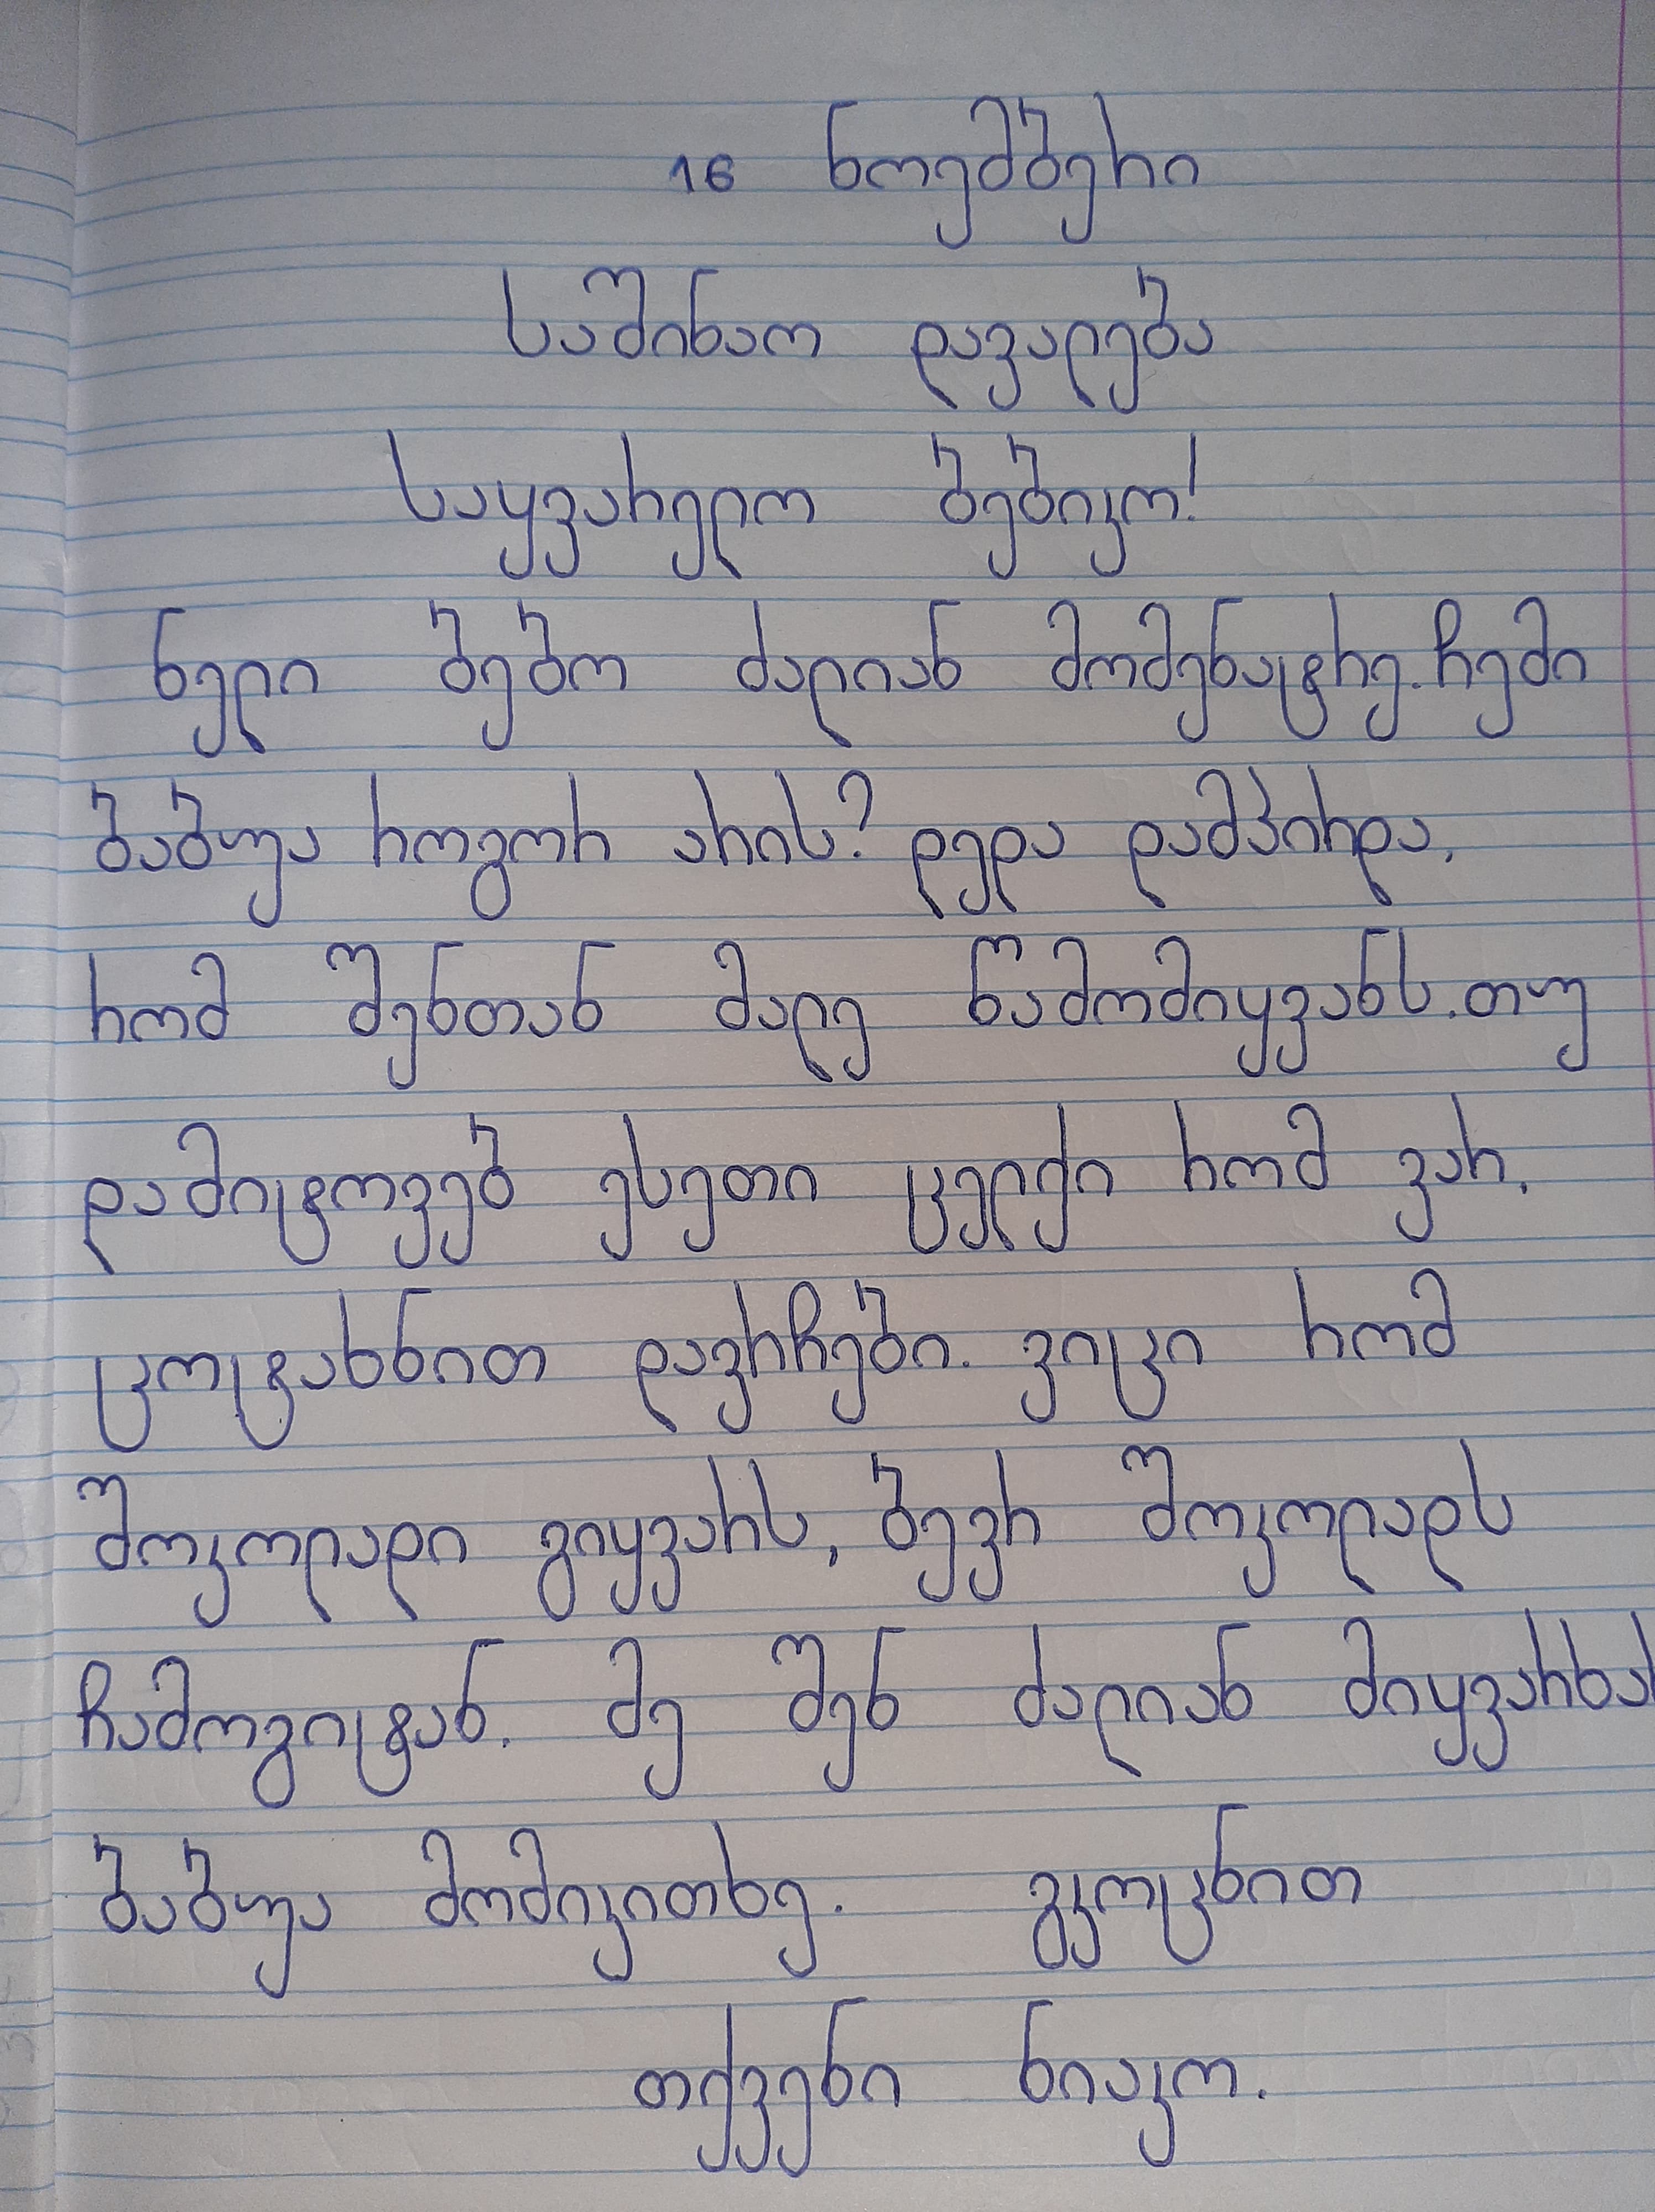 16 ნოემბერი
საშინაო დავალება
საყვარელო ბებიკო!
ნელი ბებო ძალიან მომენატრე. ჩემი
ბაბუა როგორ არის? დედა დამპირდა,
რომ შენთან მალე წამომიყვანს. თუ
დამიტოვებ ესეთი ცელქი რომ ვარ,
ცოტახნით დავრჩები. ვიცი რომ
შოკოლადი გიყვარს, ბევრ შოკოლადს
ჩამოგიტან. მე შენ ძალიან მიყვარხარ
ბაბუა მომიკითხე. გკოცნით
თქვენი ნიაკო.